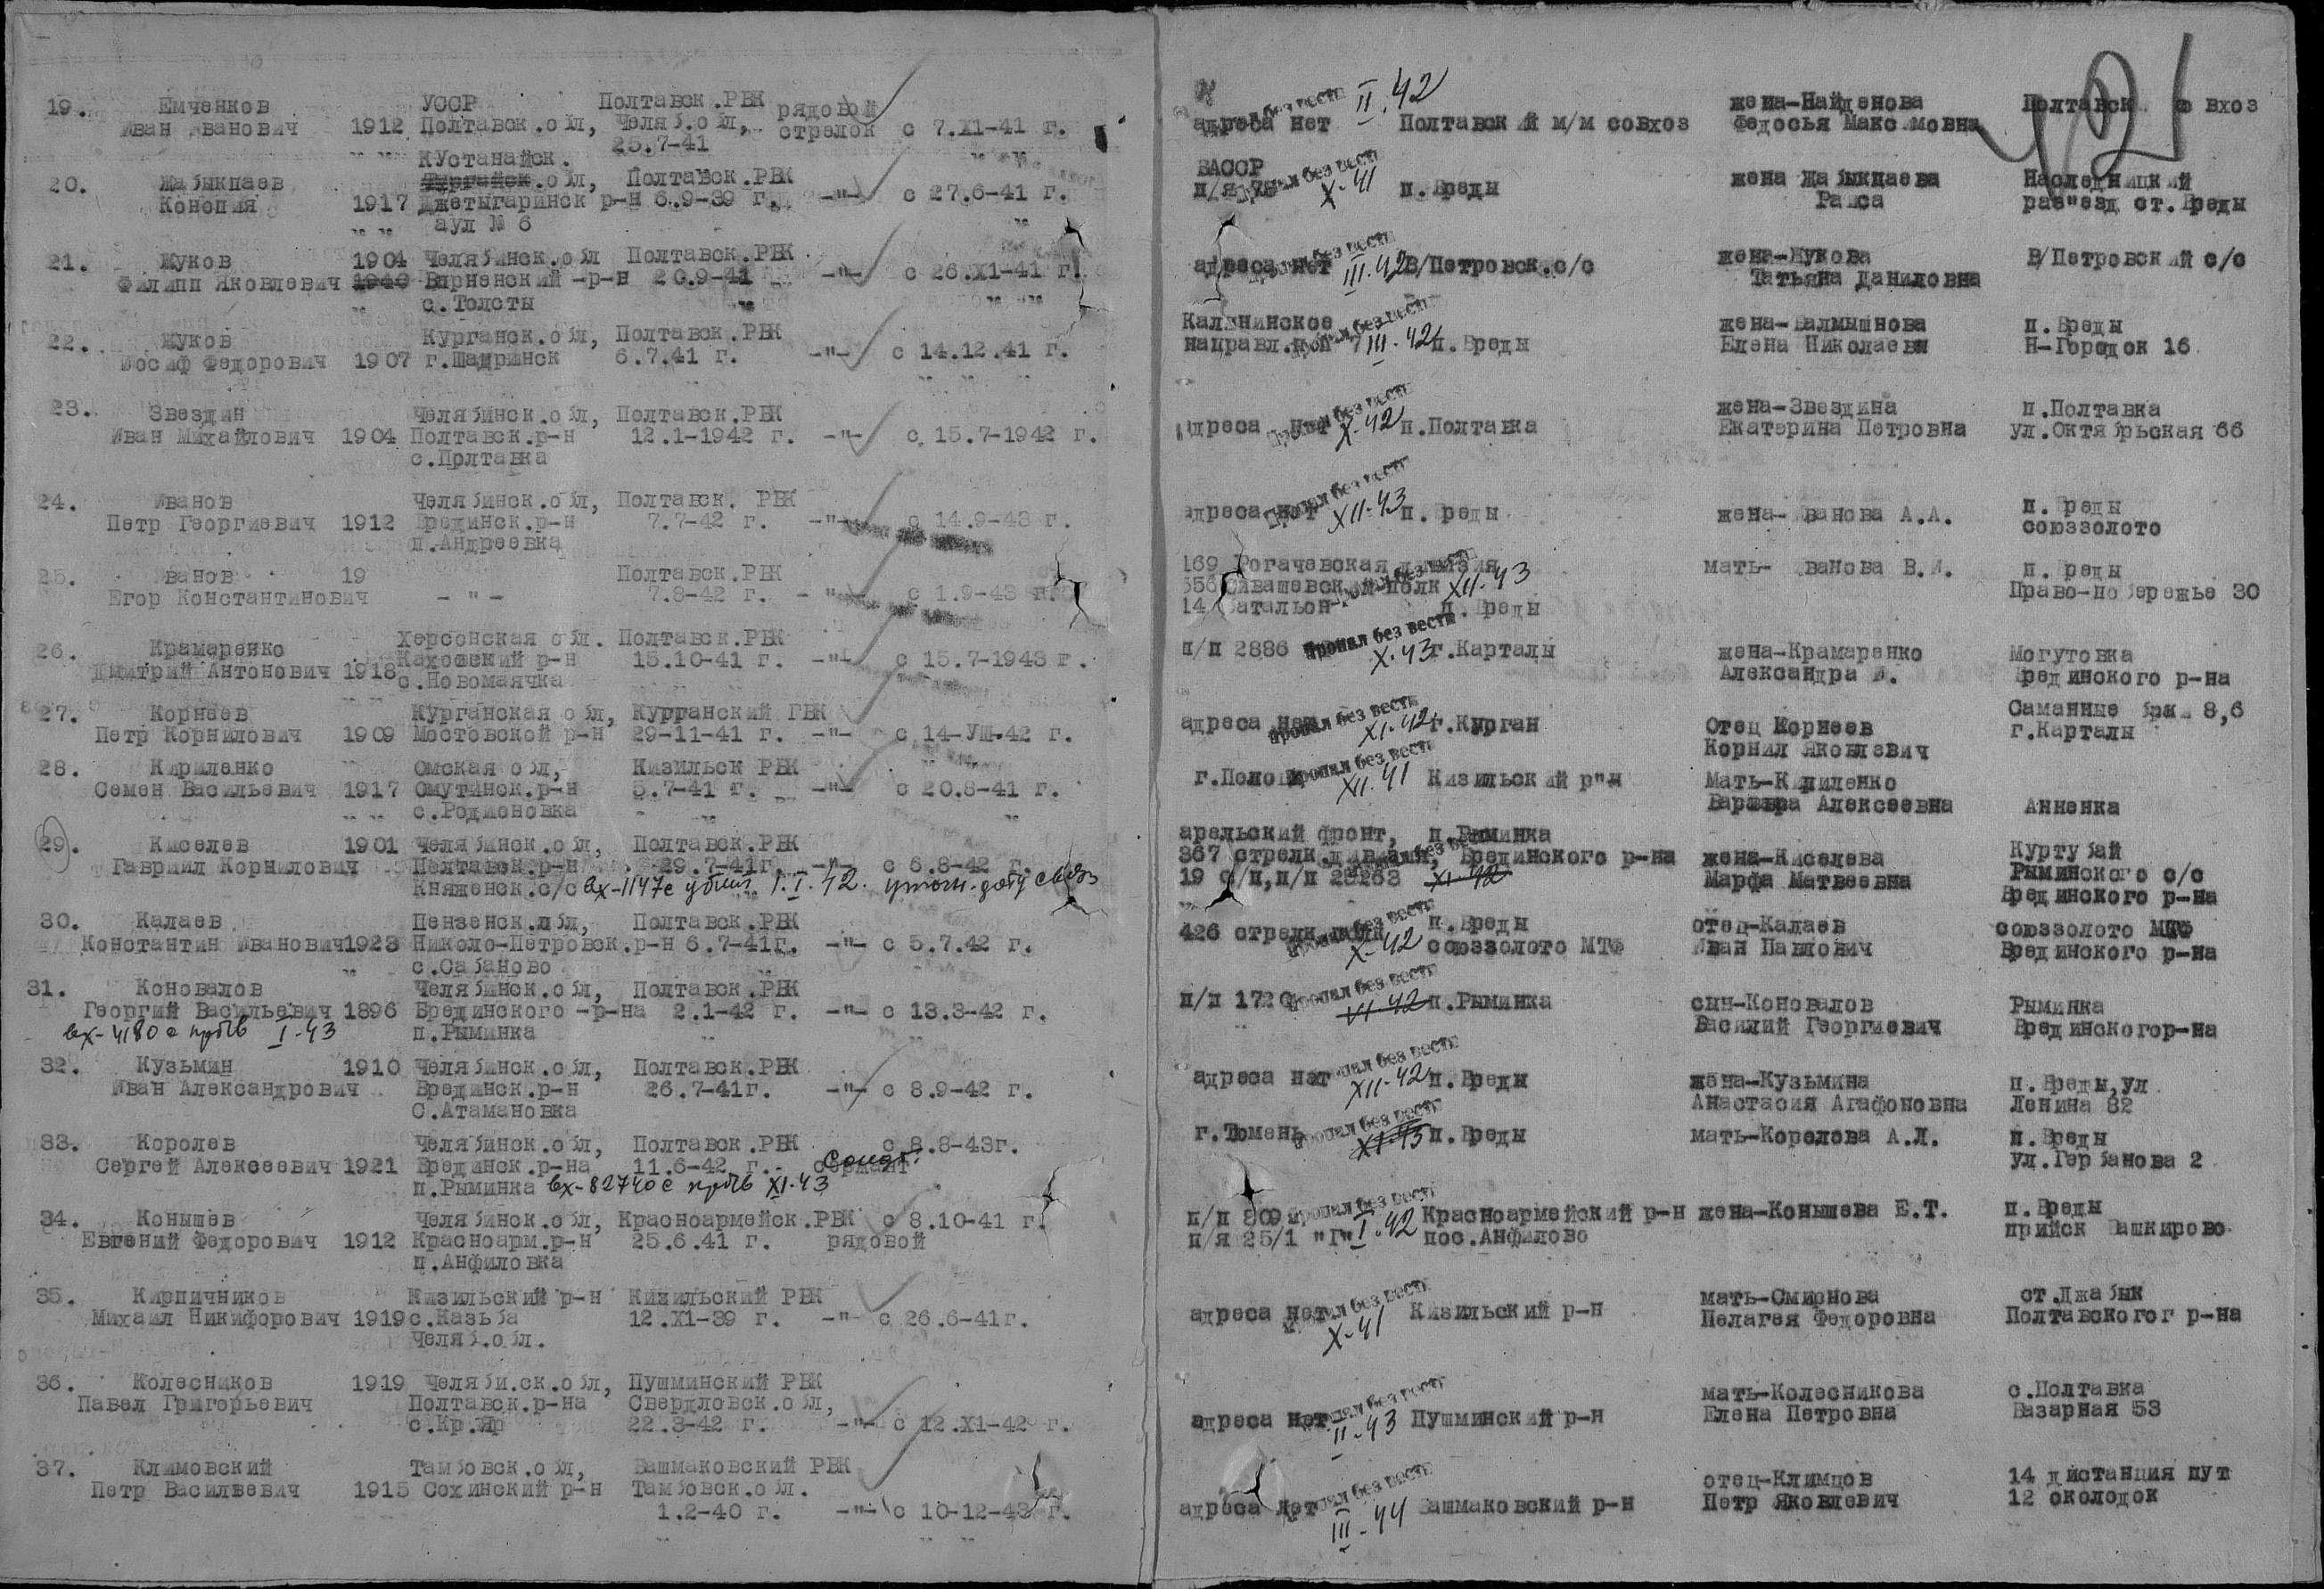 421
19. Емченков УССР Полтавск.РВК рядовой
Иван Иванович 1912 Полтавск.обл, Челяб.обл, стрелок с 7.XI-41 г.
25.7-41
адреса нет Пропал без вести II.42 Полтавский м/м совхоз жена-Найденова
Федосья Максимовна
Кустанайск.
20. Жабыкпаев Тургайск.обл, Полтавск.РВК
Конопия 1917 Джетыгаринск р-н 6.9-39 г. -"- с 27.6-41 г.
аул № 6
п/я Пропал без вести X-41 п.Бреды жена Жабыкпаева Наследницкий
Раиса раз"езд ст.Бреды
21. Жуков 1904 Челябинск.обл Полтавск.РВК
Филипп Яковлевич 1940 Варненский -р-н 20.9-41 -"- с 26.XI-41 г.
с.Толсты
адреса нет Пропал без вести III.42 В/Петровск.с/с жена-Жукова В/Петровский с/с
Татьяна Даниловна
22. Жуков Курганск.обл, Полтавск.РВК
Иосиф Федорович 1907 г.Шадринск 6.7.41 г. -"- с 14.12.41 г.
Калининское Пропал без вести жена-Балмышнова п.Бреды
направл. III-42 п.Бреды Елена Николаевн Н-Городок 16
23. Звездин Челябинск.обл, Полтавск.РВК
Иван Михайлович 1904 Полтавск.р-н 12.1-1942 г. -"- с 15.7-1942 г.
с.Полтавка
адреса нет Пропал без вести X-42 п.Полтавка жена-Звездина п.Полтавка
Екатерина Петровна ул.Октябрьская 66
24. Иванов Челябинск.обл, Полтавск. РВК
Петр Георгиевич 1912 Брединск.р-н 7.7-42 г. -"- с 14.9-43 г.
п.Андреевка
адреса нет Пропал без вести XII-43 п.Бреды жена-Иванова А.А. п.Бреды
союззолото
25. Иванов 19 Полтавск.РВК
Егор Константинович -"- 7.8-42 г. -"- с 1.9-43 г.
169 Рогачевская дивизия мать-Иванова В.И. п.Бреды
556 Сивашевск.полк Пропал без вести XII-43 Право-побережье 30
14 батальон п.Бреды
26. Крамаренко Херсонская обл. Полтавск.РВК
Дмитрий Антонович 1918 Каховский р-н 15.10-41 г. -"- с 15.7-1943 г.
с.Новомаячка
п/п 2886 Пропал без вести X.43 г.Карталы жена-Крамаренко Могутовка
Александра Брединского р-на
27. Корнеев Курганская обл, Курганский ГВК
Петр Корнилович 1909 Мостовской р-н 29-11-41 г. -"- с 14-УШ-42 г.
Саманные 8,6
адреса нет Пропал без вести XI.42 г.Курган Отец Корнеев г.Карталы
Корнил Яковлевич
28. Кириленко Омская обл, Кизильск РВК
Семен Васильевич 1917 Омутинск.р-н 5.7-41 г. -"- с 20.8-41 г.
с.Родионовка
Пропал без вести XII.41 Кизильский р"н Мать-Кириленко
Варвара Алексеевна Анненка
29. Киселев 1901 Челябинск.обл, Полтавск.РВК
Гавриил Корнилович Полтавск.р-н 29.7-41г. -"- с 6.8-42 г.
Княженск.с/с вх-1147с убит 1.I.42. уточн. дату связи
арельский фронт, п.Рыминка
367 стрелк.дивизии, Брединского р-на жена-Киселева Куртубай
19 с/п,п/п 23263 XI-42 Марфа Матвеевна Рыминского с/с
Брединского р-на
30. Калаев Пензенск.обл, Полтавск.РВК
Константин Иванович1923 Николо-Петровск.р-н 6.7-41г. -"- с 5.7.42 г.
с.Сабаново
426 стрелк. Пропал без вести X-42 п.Бреды отец-Калаев союззолото МТФ
союззолото МТФ Иван Павлович Брединского р-на
31. Коновалов Челябинск.обл, Полтавск.РВК
Георгий Васильевич 1896 Брединского -р-на 2.1-42 г. -"- с 13.3-42 г.
вх-4180с I-43 п.Рыминка
п/п 1720 Пропал без вести VI-42 п.Рыминка сын-Коновалов Рыминка
Василий Георгиевич Брединскогор-на
32. Кузьмин 1910 Челябинск.обл, Полтавск.РВК
Иван Александрович Брединск.р-н 26.7-41г. -"- с 8.9-42 г.
С.Атамановка
адреса нет Пропал без вести XII-42 п.Бреды жена-Кузьмина п.Бреды,ул
Анастасия Агафоновна Ленина 32
33. Королев Челябинск.обл, Полтавск.РВК с 8.8-43г.
Сергей Алексеевич 1921 Брединск.р-на 11.6-42 г. сержант
п.Рыминка вх-82740с XI-43
г.Тюмень Пропал без вести XI-43 п.Бреды мать-Королева А.Л. п.Бреды
ул.Горбанова 2
34. Конышев Челябинск.обл, Красноармейск.РВК с 8.10-41 г.
Евгений Федорович 1912 Красноарм.р-н 25.6.41 г. рядовой
п.Анфиловка
п/п 809 Пропал без вести Красноармейский р-н жена-Конышева Е.Т. п.Бреды
п/я 25/1 "Г" I.42 пос.Анфилово прийск Башкирово
35. Кирпичников Кизильский р-н Кизильский РВК
Михаил Никифорович 1919 с.Казьба 12.XI-39 г. -"- с 26.6-41г.
Челяб.обл.
адреса нет Пропал без вести X-41 Кизильский р-н мать-Смирнова ст.Джабык
Пелагея Федоровна Полтавскогог р-на
36. Колесников 1919 Челяби.ск.обл, Пушминский РВК
Павел Григорьевич Полтавск.р-на Свердловск.обл,
с.Кр.Яр 22.3-42 г. -"- с 12.XI-42 г.
адреса нет Пропал без вести II-43 Пушминский р-н мать-Колесникова с.Полтавка
Елена Петровна Базарная 53
37. Климовский Тамбовск.обл, Башмаковский РВК
Петр Васильевич 1915 Сохинский р-н Тамбовск.обл.
1.2-40 г. -"- с 10-12-43 г.
адреса нет Пропал без вести III-44 Башмаковский р-н отец-Климцов 14 дистанция пут
Петр Яковлевич 12 околодок